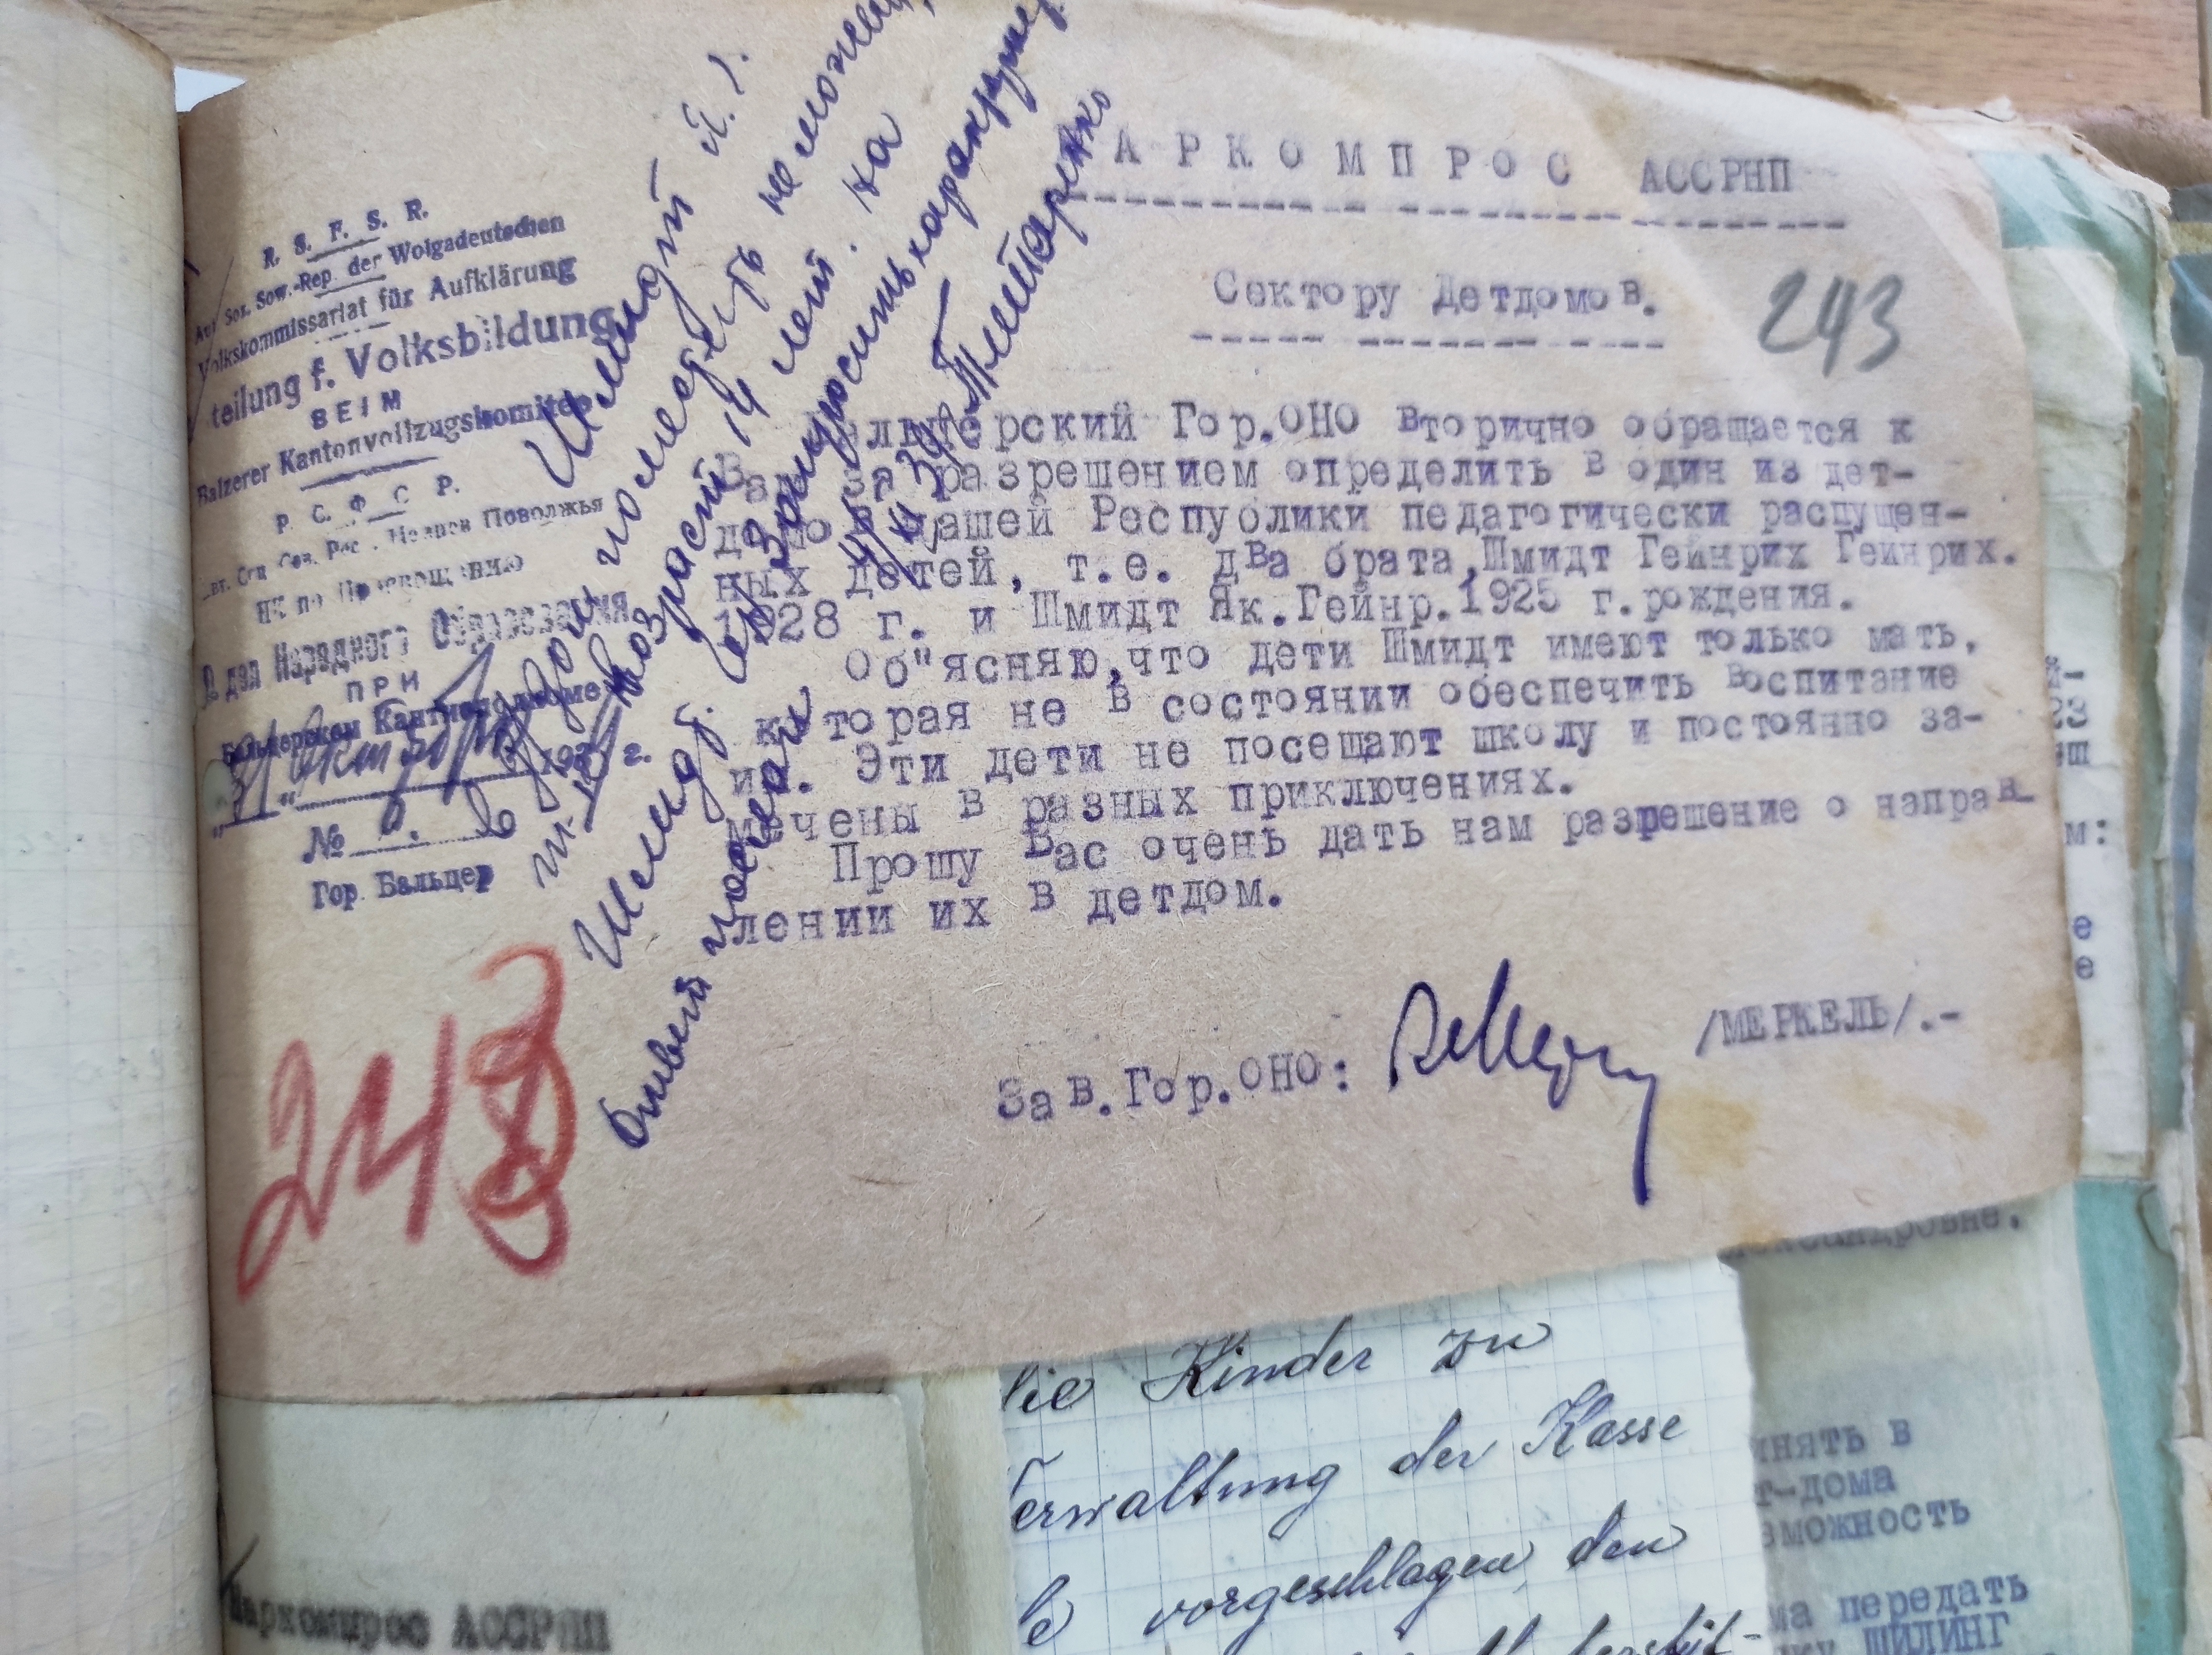 R. S. F. S. R.
Aut Soz. Sow.-Rep. der Wolgadeutschen
Volkskommissariat für Aufklärung
teilung f. Volksbildung
BEIM
Balzerer Kantonvollzugskomitee
Р. С. Ф. С. Р.
Немцев Поволжья
НК по Просвещению
Отдел Народного Образования
ПРИ
Бальцерском Кантисполкоме
"31" октября 193 г.
№
Гор. Бальцер
АРКОМПРОС АССРНП
Сектору Детдомов.
243
Бальцерский Гор.ОНО вторично обращается к
Вам за разрешением определить в один из дет-
домов нашей Республики педагогически распущен-
ных детей, т.е. два брата,Шмидт Гейнрих Гейнрих.
1928 г. и Шмидт Як.Гейнр.1925 г.рождения.
Об"ясняю,что дети Шмидт имеют только мать,
которая не в состоянии обеспечить воспитание
их. Эти дети не посещают школу и постоянно за-
мечены в разных приключениях.
Прошу Вас очень дать нам разрешение о направ-
лении их в детдом.
Зав.Гор.ОНО: /МЕРКЕЛЬ/.-
Шмидт Я. Г.
возраст 14 лет. на
Шмидт.
Запросить характери
Ответ послан
243
die Kinder zu
Verwaltung der Kasse
vorgeschlagen, den
Наркомпрос АССРНП
лександровне.
инять в
т-дома
зможность
ма передать
ШИЛИНГ
23
м:
е
е